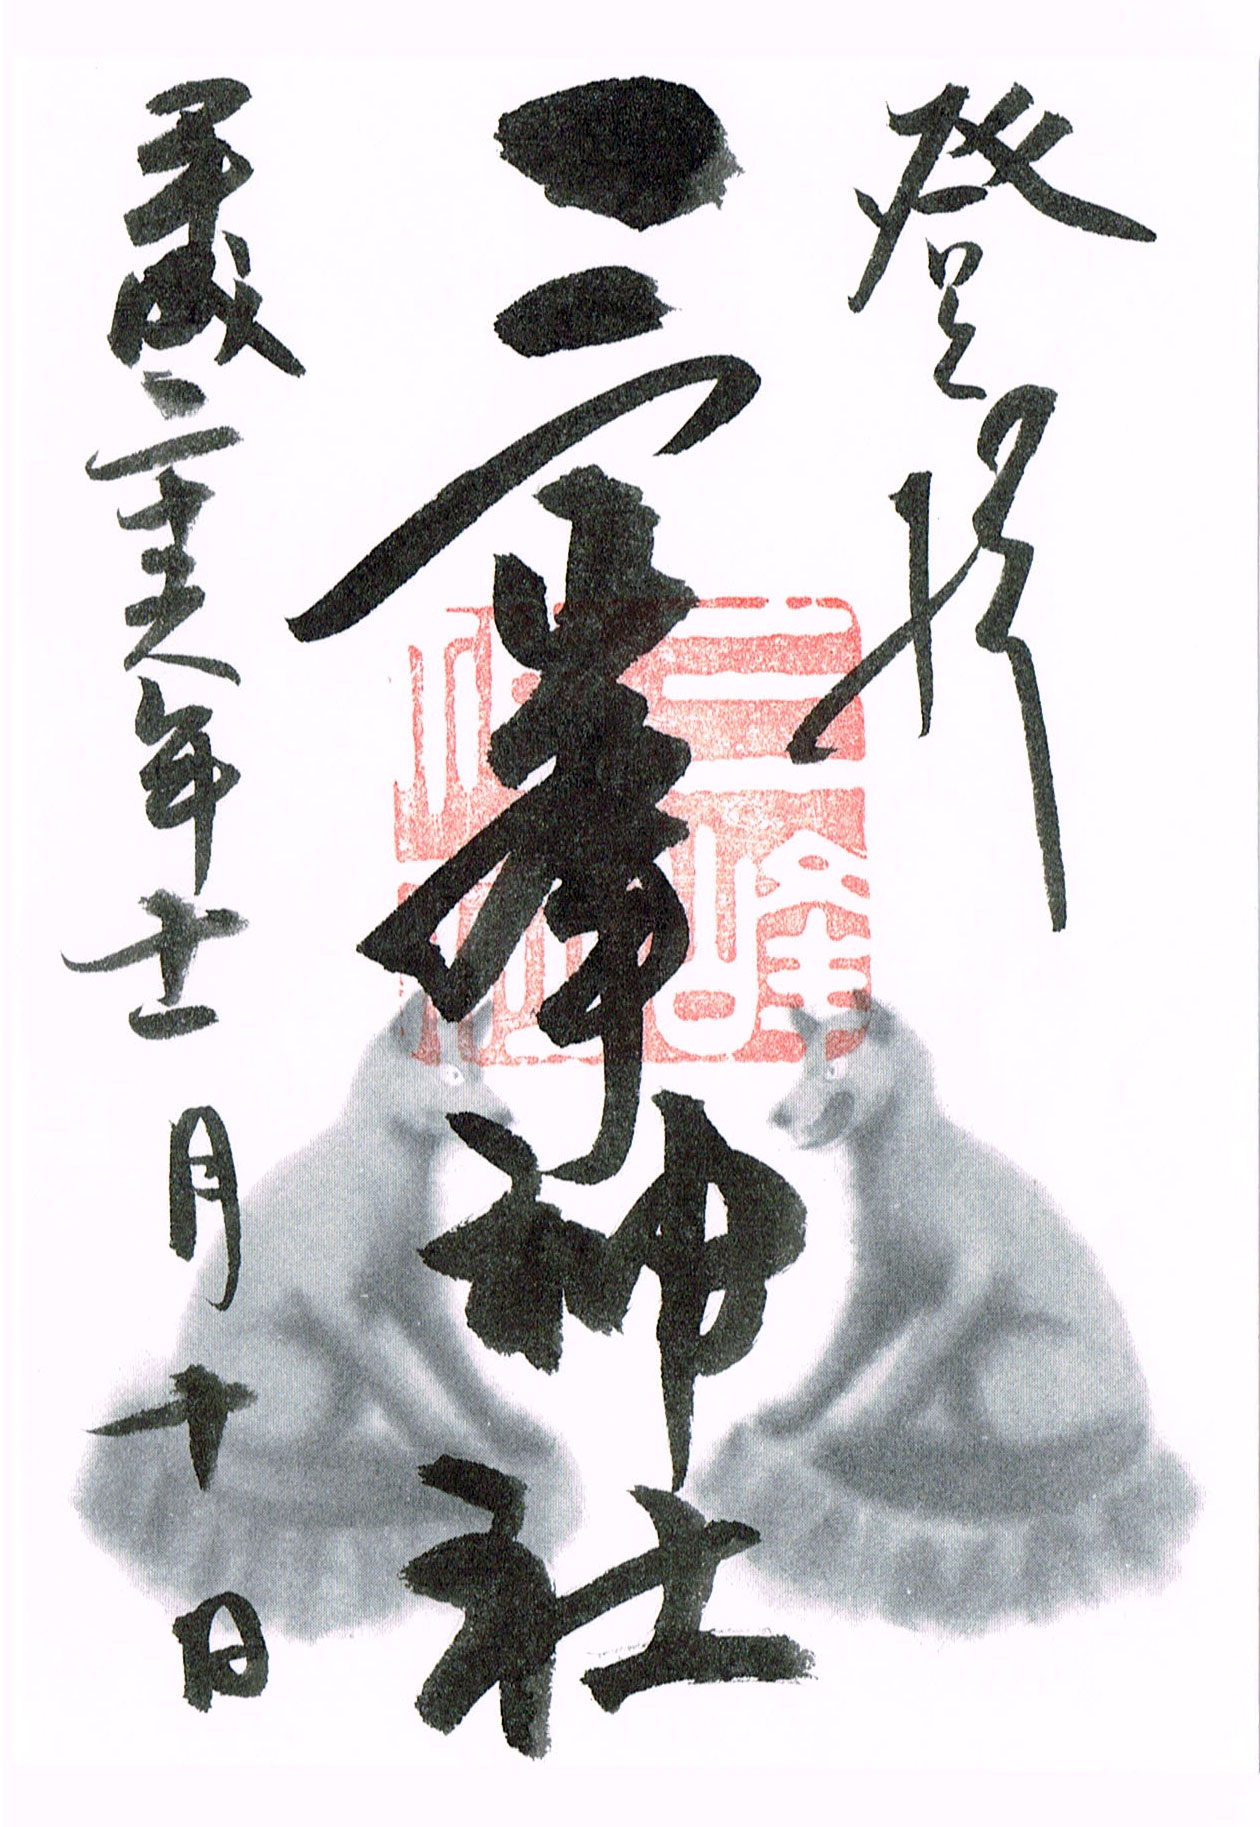 登拝
三峯神社
平成二十六年十一月十日
三峰